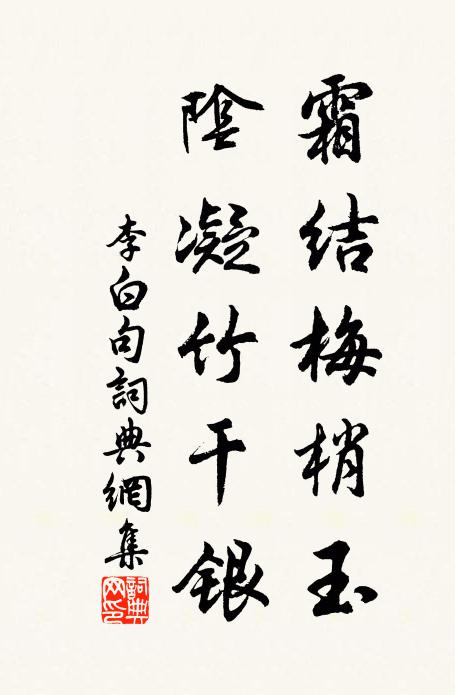 霜结梅梢玉
陰凝竹干銀
李白句詞典網集
詞典网印